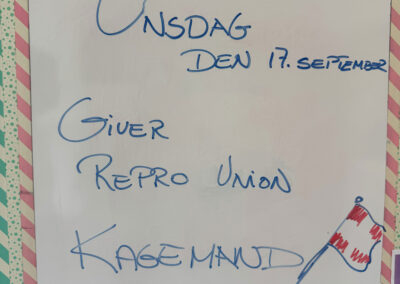 ONSDAG
DEN 17. SEPTEMBER
GIVER
REPRO UNION
KAGEMAND